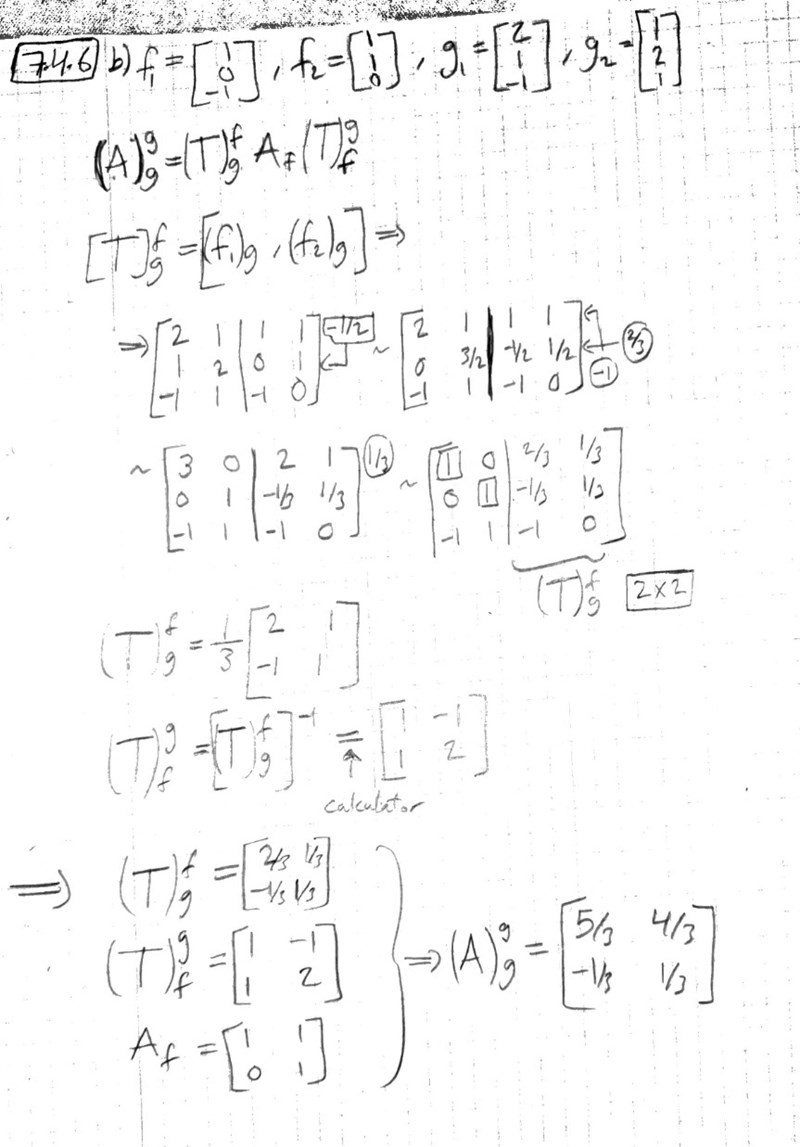 7.4.6 b) f₁ = [1; 0; -1], f₂ = [1; 1; 0], g₁ = [2; 1; -1], g₂ = [1; 2; 1]
(A)_g^g = (T)_g^f A_f (T)_f^g
[T]_g^f = [(f₁)g, (f₂)g] ⇒
⇒ [2 1 | 1 1; 1 2 | 0 1; -1 1 | -1 0] -1/2 ~ [2 1 | 1 1; 0 3/2 | -1/2 1/2; -1 1 | -1 0] -1 2/3
~ [3 0 | 2 1; 0 1 | -1/3 1/3; -1 1 | -1 0] 1/3 ~ [1 0 | 2/3 1/3; 0 1 | -1/3 1/3; -1 1 | -1 0]
(T)_g^f 2×2
(T)_g^f = 1/3 [2 1; -1 1]
(T)_f^g = [(T)_g^f]^-1 = [1 -1; 1 2]
calculator
⇒ (T)_g^f = [2/3 1/3; -1/3 1/3]
(T)_f^g = [1 -1; 1 2] ⇒ (A)_g^g = [5/3 4/3; -1/3 1/3]
A_f = [1 1; 0 1]